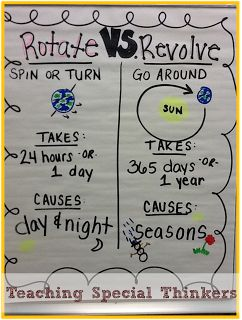 Rotate VS. Revolve
SPIN OR TURN
TAKES:
24 hours -OR-
1 day
CAUSES:
day & night
GO AROUND
SUN
TAKES:
365 days -OR-
1 year
CAUSES:
seasons
Teaching Special Thinkers